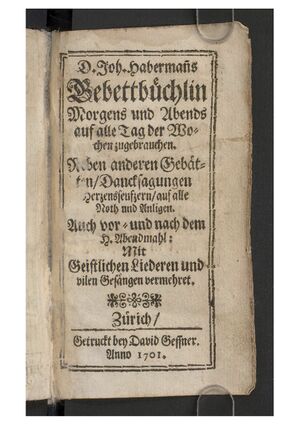 D. Joh. Habermañs
Gebettbüchlin
Morgens und Abends
auf alle Tag der Wo-
chen zugebrauchen.
Neben anderen Gebät-
ten/Dancksagungen
Herzensseufzern/auf alle
Noth und Anligen.
Auch vor- und nach dem
H. Abendmahl:
Mit
Geistlichen Liederen und
vilen Gesängen vermehret.
Zürich/
Getruckt bey David Gessner.
Anno 1701.